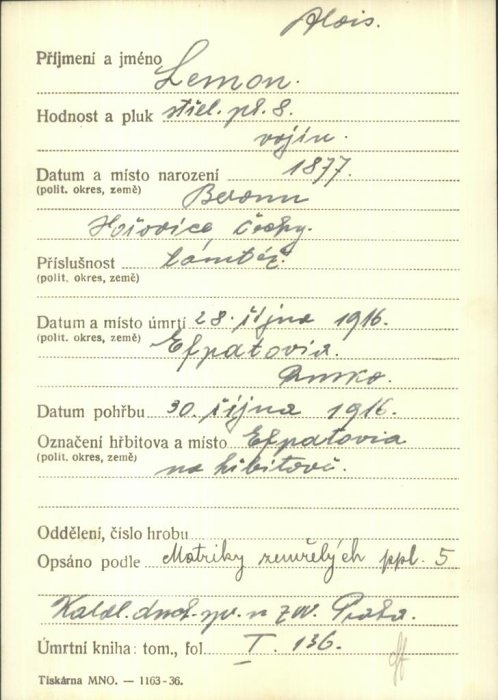 Alois.
Příjmení a jméno Lemon.
Hodnost a pluk střel. pl. 8.
vojín.
Datum a místo narození 1877.
(polit. okres, země) Beroun
Hořovice Čechy.
Příslušnost tamtéž.
(polit. okres, země)
Datum a místo úmrtí 28. října 1916.
(polit. okres, země) Efpatovia.
Rusko.
Datum pohřbu 30. října 1916.
Označení hřbitova a místo Efpatovia
(polit. okres, země) na hřbitově.
Oddělení, číslo hrobu
Opsáno podle Matriky zemřelých ppl. 5
duch. spr. v Praha.
Úmrtní kniha: tom., fol. I. 136.
Tiskárna MNO. — 1163-36.